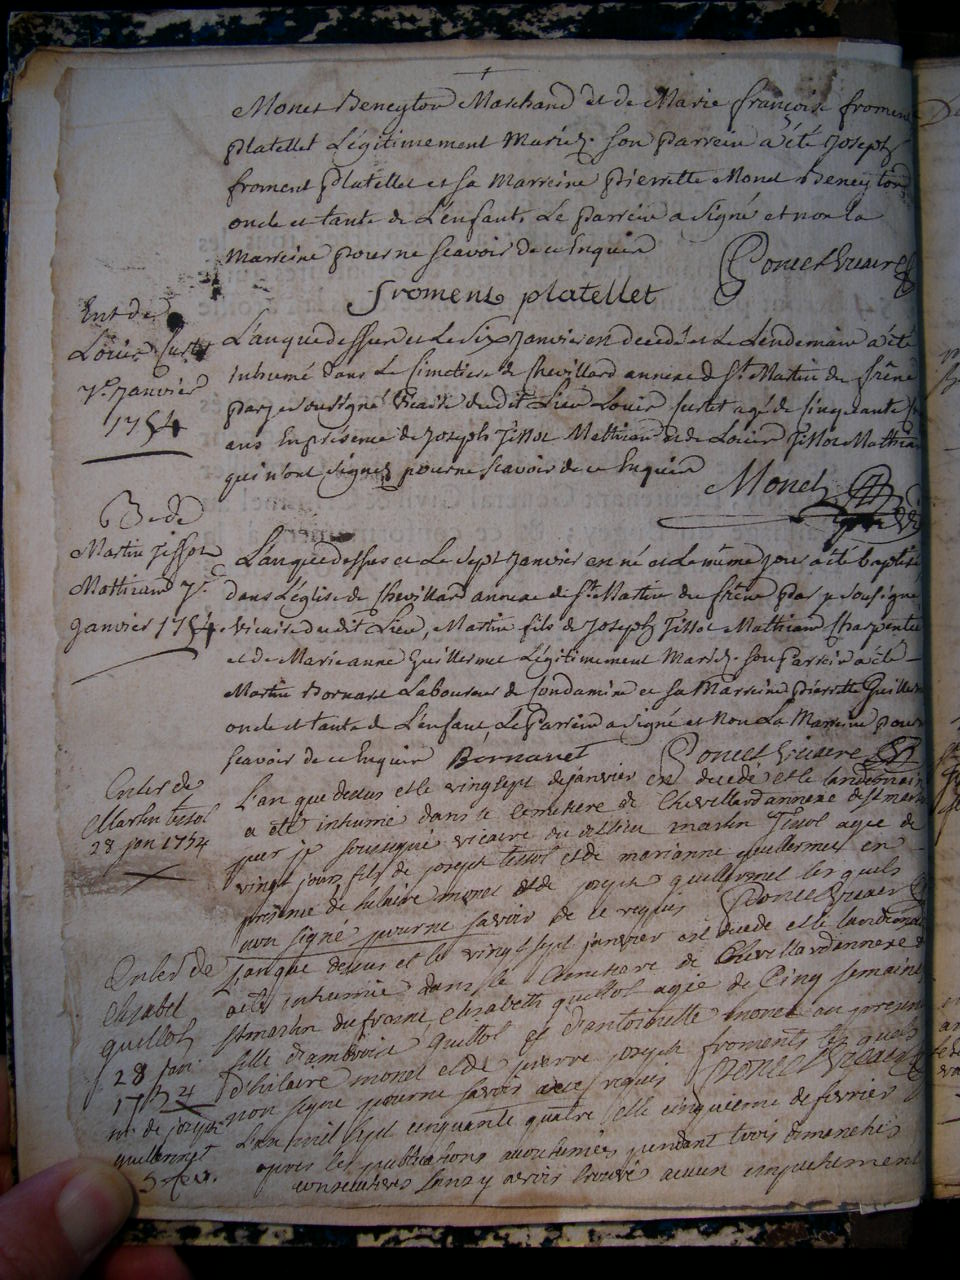 Monet Beneyton Marchand et de Marie françoise froment
platellet Légitimement Mariéz. son parrein a été Joseph
froment platellet et sa Marreine pierrette Monet Beneyton
oncle et tante de L'enfant. Le parrein a signé et non la
Marreine pour ne scavoir de ce Enquise Poncet Vicaire
froment platellet
Ent. de
Louis Curtet
7e. Janvier
1754
L'anquedessus et Le Six Janvier en decedé et Le Lendemain a été
Inhumé dans Le Cimetiere de Chevillard annexe de St. Martin du frêne
par je soussigné Vicaire dudit Lieu Louis Curtet agé de Cinquante
ans En présence de Joseph Tissot Mathian et de Louis Tissot Mathian
qui n'ont signez pour ne scavoir de ce Enquis Monet
B. de
Martin Tissot
Mathian 7e.
Janvier 1754.
L'anquedessus et Le sept Janvier en né et Le même jour a été baptisé
dans L'église de Chevillard annexe de St. Martin du frêne par je soussigné
Vicaire dudit Lieu, Martin fils de Joseph Tissot Mathian Charpentier
et de Marieanne Guillermet Légitimement Mariéz. son parrein a été
Martin Bornaret Laboureur de Condamine et sa Marreine pierrette
oncle et tante de L'enfant, Le Parrein a signé et non La Marreine pour
scavoir de ce Enquise Bornaret Poncet Vicaire
Enter de
Martin tissot
28 janv 1754
L'an que dessus et le vingt sept de janvier en decedé et le landemain
a eté inhumé dans le Cemetiere de Chevillard annexe de st martin
par je soussigné vicaire du dit lieu martin Tissot agée de
vingt jours fils de joseph tissot et de marianne guillermet en
presence de hilaire monet et de joseph guillermet les quels
non signé pour ne savoir de ce requis Poncet Vicaire
Enter de
Elisabet
quillot
28 janv
1754
L'an que dessus et le vingt sept janvier est decedé et le landemain
a été inhumée dans le Cemetiere de Chevillard annexe de
st martin du fresne, Elisabeth quillot agée de Cinq semaines
fille d'ambroise quillot et d'antoinette monet en presence
d'hilaire monet et de pierre joseph froments les quels
non signé pour ne savoir de ce requis Poncet Vicaire
m. de joseph
guillermet
L'an mil sept cinquante quatre et le cinquieme de fevrier
apres les publications accoutumées pendant trois dimanches
consecutives sans y avoir trouvé aucun empechement